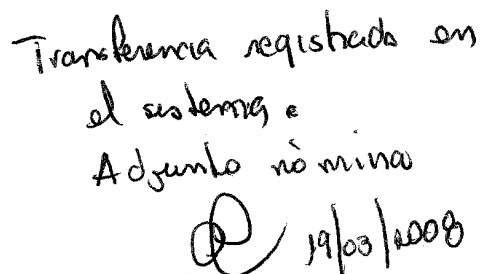 Transferencia registrada en
el sistema.
Adjunto nòmina
19/03/2008